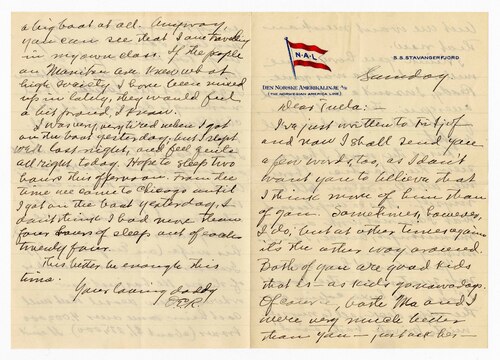 a big boat at all. Anyway,
you can see that I am traveling
in my own class. If the people
on Manitou Ave. knew what
high society I have been mixed
up in lately, they would feel
a bit proud, I know.
I was very very tired when I got
on the boat yesterday, but I slept
well last night, and feel quite
all right today. Hope to sleep two
hours this afternoon. From the
time we came to Chicago until
I got on the boat yesterday, I
don't think I had more than
four hours of sleep out of each
twenty four.
This better be enough this
time.
Your loving daddy
N.A.L
S.S. STAVANGERFJORD
DEN NORSKE AMERIKALINJE A/S
(THE NORWEGIAN AMERICA LINE)
Sunday.
Dear Tulla:-
I've just written to Fritjof
and now I shall send you
a few words, too, as I don't
want you to believe that
I think more of him than
of you. Sometimes, however,
I do, but at other times again
it's the other way around.
Both of you are good kids
that is - as kids go nowadays.
Of course, both Ma and I
were very much better
than you - just ask her -